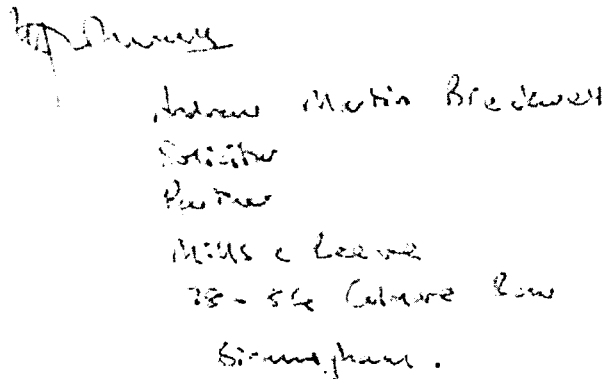 Andrew Martin Breckwell
Solicitor
Partner
Mills & Reeve
78-84 Colmore Row
Birmingham.